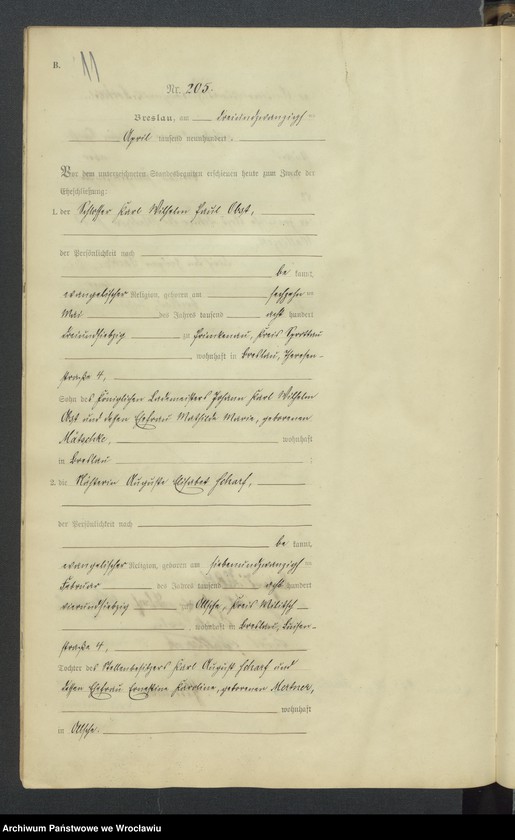 B.
11
Nr. 205.
Breslau, am dreiundzwanzigsten
April tausend neunhundert
Vor dem unterzeichneten Standesbeamten erschienen heute zum Zwecke der
Eheschließung:
1. der Schlosser Karl Wilhelm Paul Obst,
der Persönlichkeit nach
be kannt,
evangelischer Religion, geboren am sechzehn
Mai des Jahres tausend acht hundert
dreiundsiebzig zu Primkenau, Kreis Sprottau
, wohnhaft in Breslau, Theresen-
straße 4,
Sohn des Königlichen Lademeisters Johann Karl Wilhelm
Obst und dessen Ehefrau Mathilde Marie, geborenen
wohnhaft
in Breslau ;
2. die Näherin Auguste Elisabet Scharf,
der Persönlichkeit nach
be kannt,
evangelischer Religion, geboren am siebenundzwanzigsten
Februar des Jahres tausend acht hundert
vierundsiebzig zu Kreis Militsch
, wohnhaft in Breslau,
straße 4,
Tochter des Stellenbesitzers Karl August Scharf und
dessen Ehefrau Ernestine Karoline, geborenen
wohnhaft
in
Archiwum Państwowe we Wrocławiu